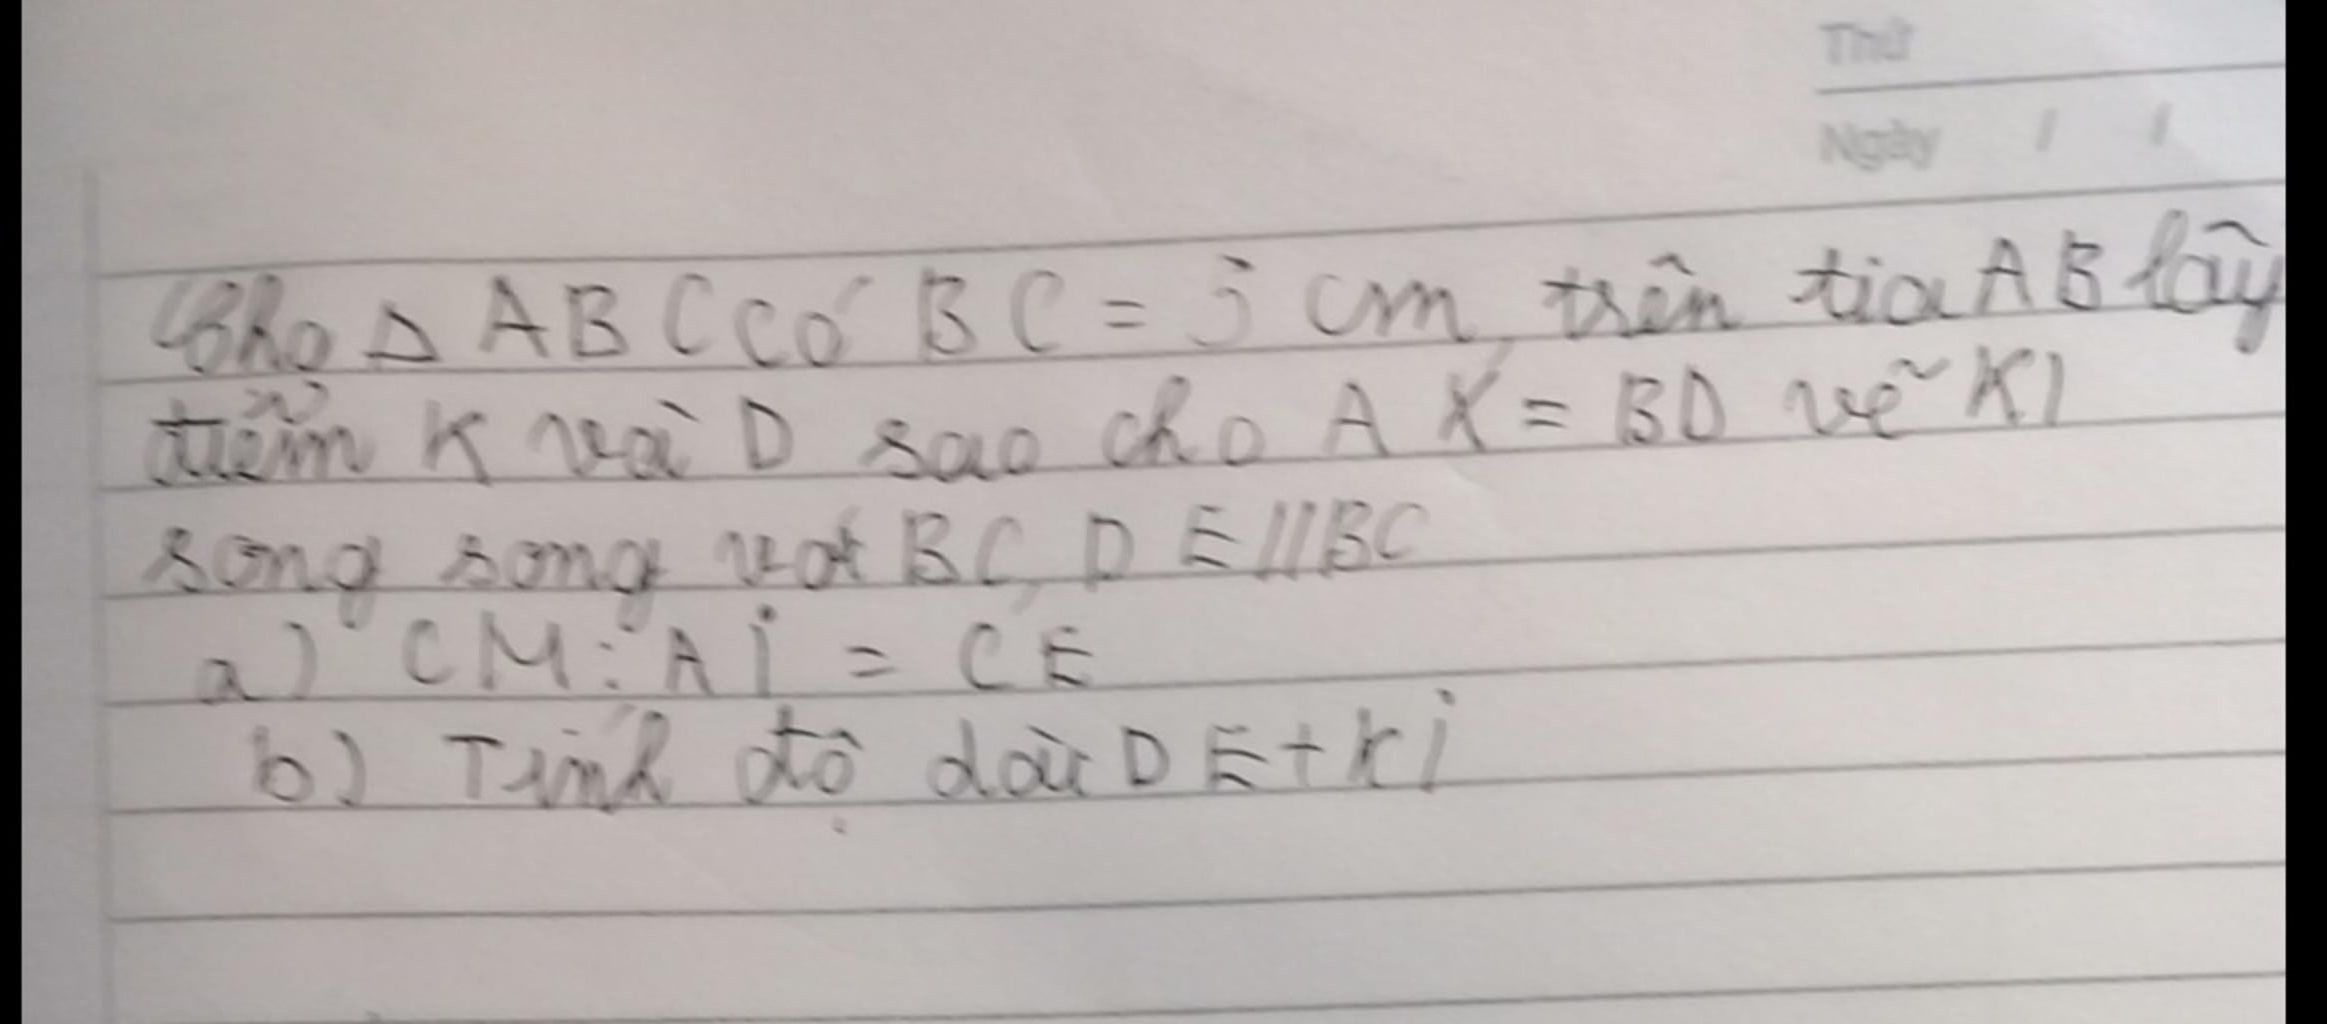 Thứ
Ngày / /
Cho Δ ABC có BC = 5 cm, trên tia AB lấy
điểm K và D sao cho AK = BD vẽ KI
song song với BC, DE // BC
a) CM : Ai = CE
b) Tính độ dài DE + Ki